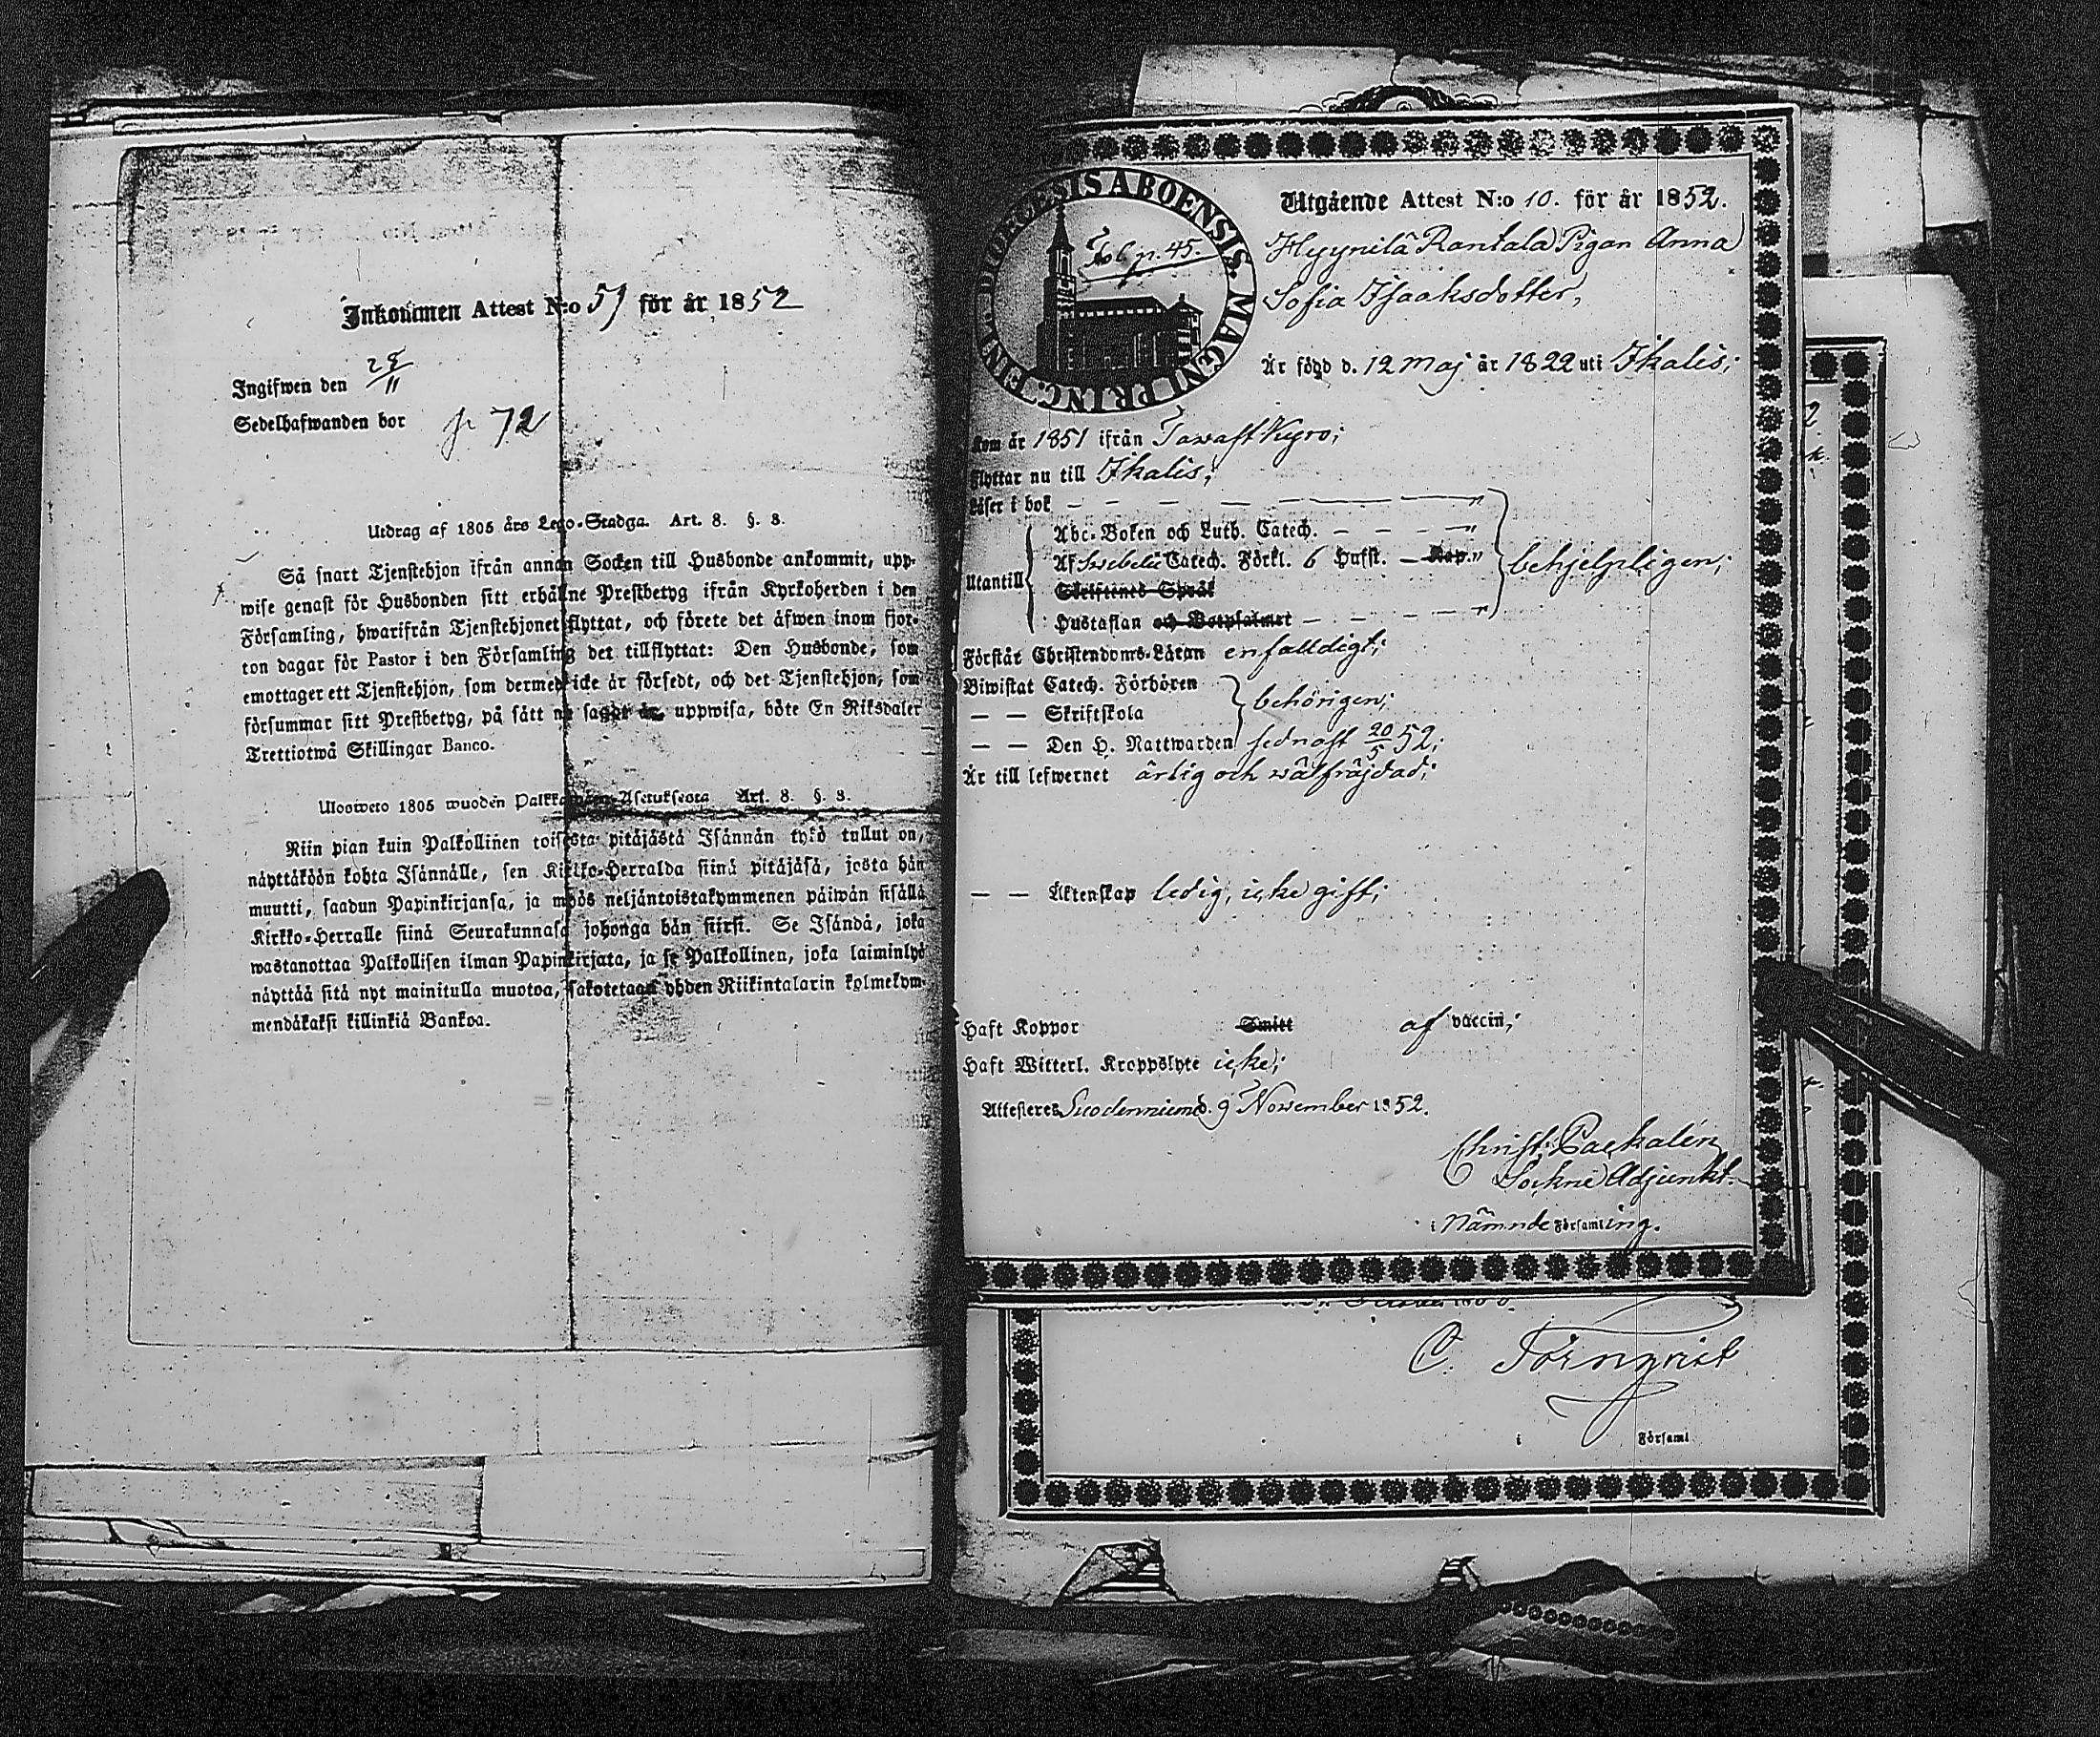 Inkommen Attest N:o 59 för år 1852
Ingifwen den 28/11
Sedelhafwanden bor p. 72
Utdrag af 1805 års Lego-Stadga. Art. 8. §. 3.
Så snart Tjenstehjon ifrån annan Socken till Husbonde ankommit, upp-
wise genast för Husbonden sitt erhållne Prestbetyg ifrån Kyrkoherden i den
Församling, hwarifrån Tjenstehjonet flyttat, och förete det äfwen inom fjor-
ton dagar för Pastor i den Församling det tillflyttat: Den Husbonde, som
emottager ett Tjenstehjon, som dermed icke är försedt, och det Tjenstehjon, som
försummar sitt Prestbetyg, på sätt nu sagdt är, uppwisa, böte En Riksdaler
Trettiotwå Skillingar Banco.
Ulosweto 1805 wuoden Palkkawäen-Asetuksesta Art. 8. §. 3.
Niin pian kuin Palkollinen toisesta pitäjästä Isännän tykö tullut on,
näyttäköön kohta Isännälle, sen Kirkko-Herralda siinä pitäjäsä, josta hän
muutti, saadun Papinkirjansa, ja myös neljäntoistakymmenen päiwän sisällä
Kirkko-Herralle siinä Seurakunnasa johonga hän siirsi. Se Isändä, joka
wastanottaa Palkollisen ilman Papinkirjata, ja se Palkollinen, joka laiminlyö
näyttää sitä nyt mainitulla muotoa, sakotetaan yhden Riikintalarin kolmekym-
mendäkaksi killinkiä Bankoa.
DIOECESIS ABOENSIS. MAGNI PRINC. FINL.
Fol. p. 45.
Utgående Attest N:o 10. för år 1852.
Hyynilä Rantala Pigan Anna
Sofia Isaaksdotter,
Är född d. 12 Maj år 1822 uti Ikalis;
Kom år 1851 ifrån Tavast Kyro;
Flyttar nu till Ikalis;
Läser i bok — — — — — — "
Abc-Boken och Luth. Catech. — — — "
Af Svebelii Catech. Förkl. 6 Hufst. — Kap. " behjelpligen;
Utantill
Skriftenes Språk
Hustaflan och Botpsalmet — — — "
Förstår Christendoms-Läran enfalldigt;
Biwistat Catech. Förhören
behörigen;
— — Skriftskola
— — Den H. Nattwarden sednast 20/5 52;
Är till lefwernet ärlig och välfräjdad;
— — Äktenskap ledig, icke gift;
Haft Koppor Smitt af vaccin;
Haft Witterl. Kroppslyte icke;
Attesteres Suodenniemi d. 9 November 1852.
Christ. Packalén
Sockne Adjunkt.
i Nämnde Församling.
C. Törnqvist
i Församl